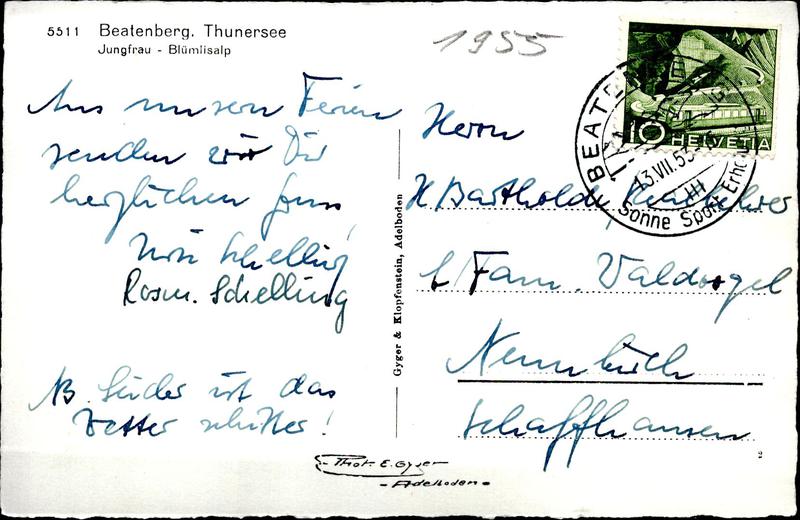 5511 Beatenberg, Thunersee
Jungfrau - Blümlisalp
1955
BEATENBERG
13.VII.55
Sonne Sport Erholung
10 HELVETIA
Aus unsern Ferien
senden wir Dir
herzlichen Gruss,
Schelling
Rosm. Schelling
NB. Leider ist das
Wetter schitter!
Gyger & Klopfenstein, Adelboden
Herrn
H Bartholdi, Reallehrer
b/ Fam. Waldvogel
Neunkirch
Schaffhausen
2
Phot. E. Gyger
- Adelboden -